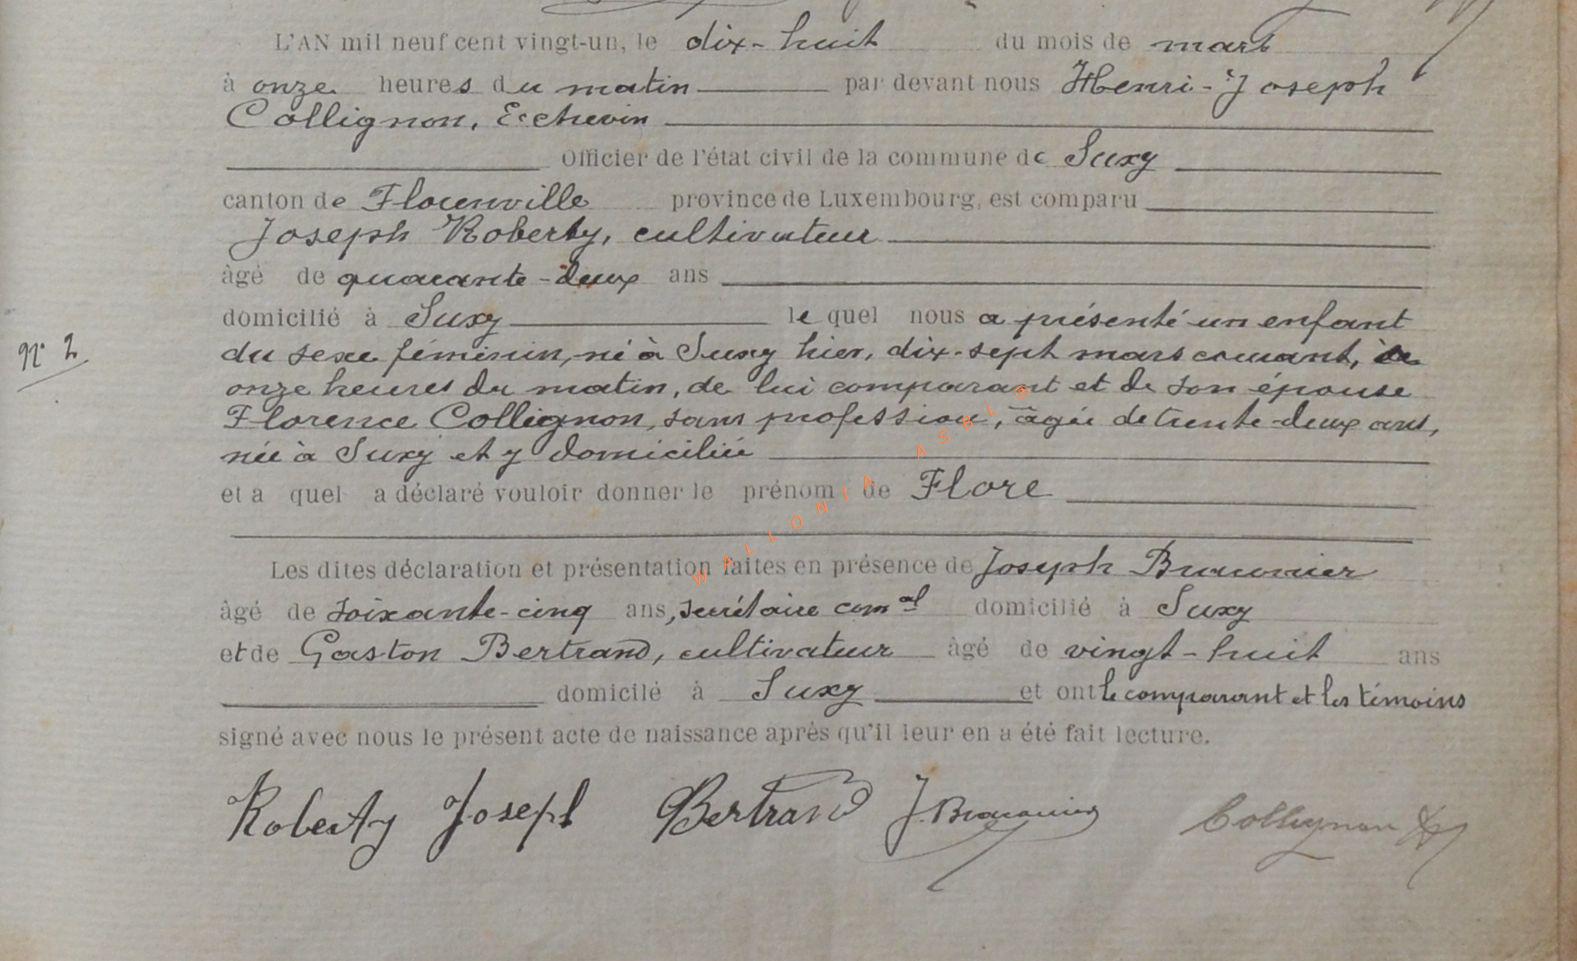 L'AN mil neuf cent vingt-un, le dix-huit du mois de mars
à onze heures du matin par devant nous Henri-Joseph
Collignon, Echevin
Officier de l'état civil de la commune de Suxy
canton de Florenville province de Luxembourg, est comparu
Joseph Roberty, cultivateur
âgé de quarante-deux ans
domicilié à Suxy lequel nous a présenté un enfant
N° 2
du sexe féminin, né à Suxy hier, dix-sept mars courant, à
onze heures du matin, de lui comparant et de son épouse
Florence Collignon, sans profession, âgée de trente-deux ans,
née à Suxy et y domiciliée
et a quel a déclaré vouloir donner le prénom de Flore
Les dites déclaration et présentation faites en présence de Joseph Braconnier
âgé de soixante-cinq ans, secrétaire com al domicilié à Suxy
et de Gaston Bertrand, cultivateur âgé de vingt-huit ans
domicilé à Suxy et ont le comparant et les témoins
signé avec nous le présent acte de naissance après qu'il leur en a été fait lecture.
Roberty Joseph Bertrand J. Braconnier Collignon
WALLONIA ASBL